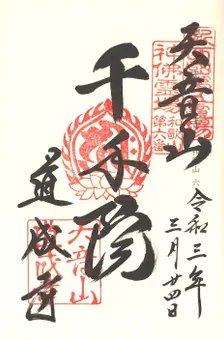 天音山
千手院
道成寺
令和三年
三月廿四日
和歌山
第六番
天音山
道成寺